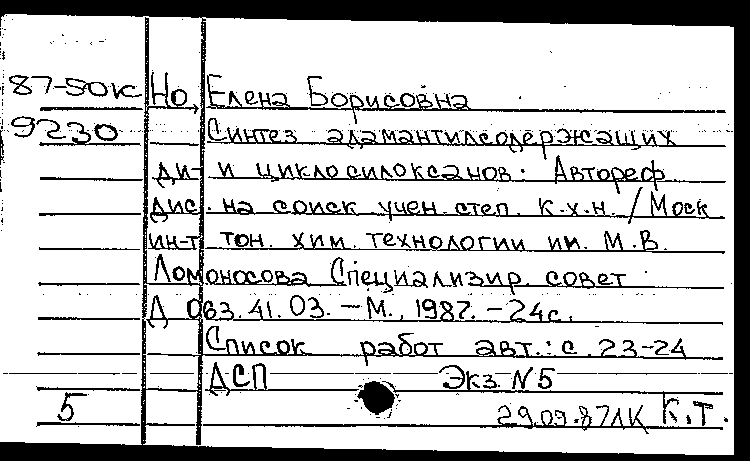 87-50к Но, Елена Борисовна
9230 Синтез адамантилсодержащих
ди- и циклосилоксанов: Автореф.
дис. на соиск. учен. степ. к.х.н. / Моск
ин-т тон. хим. технологии им. М.В.
Ломоносова Специализир. совет
Д 063.41.03. - М., 1987. - 24с.
Список работ авт.: с. 23-24
ДСП Экз. N5
5 29.09.87ЛК К.Т.